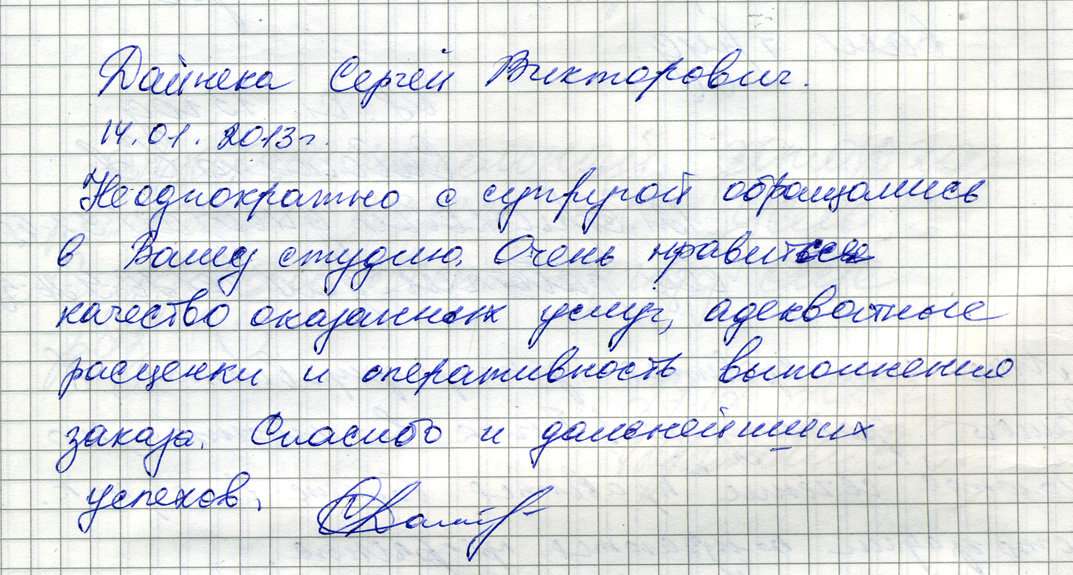 Дайнека Сергей Викторович.
14.01.2013г.
Неоднократно с супругой обращались
в Вашу студию. Очень нравится
качество оказанных услуг, адекватные
расценки и оперативность выполнения
заказа. Спасибо и дальнейших
успехов.